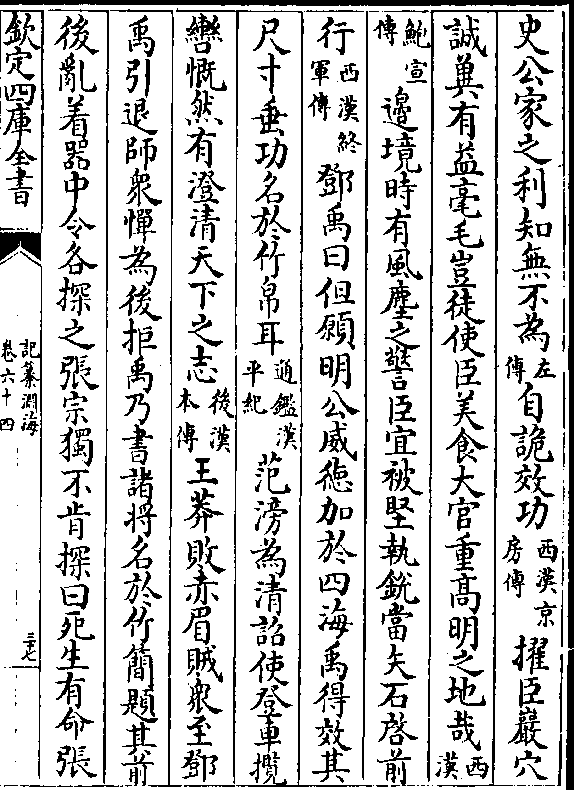 史公家之利知無不為左傳自詭效功西漢京房傳擢臣巖穴
誠兾有益毫毛豈徒使臣美食大官重髙明之地哉西漢
鮑宣傳邉境時有風塵之警臣宜被堅執銳當矢石啓前
行西漢終軍傳鄧禹曰但願明公威徳加於四海禹得效其
尺寸垂功名於竹帛耳通鑑漢平紀范滂為清詔使登車攬
轡慨然有澄清天下之志後漢本傳王莽敗赤眉賊衆至鄧
禹引退師衆憚為後拒禹乃書諸將名於竹簡題其前
後亂着器中令各探之張宗獨不肯探曰死生有命張
欽定四庫全書
記纂淵海
卷六十四
三七